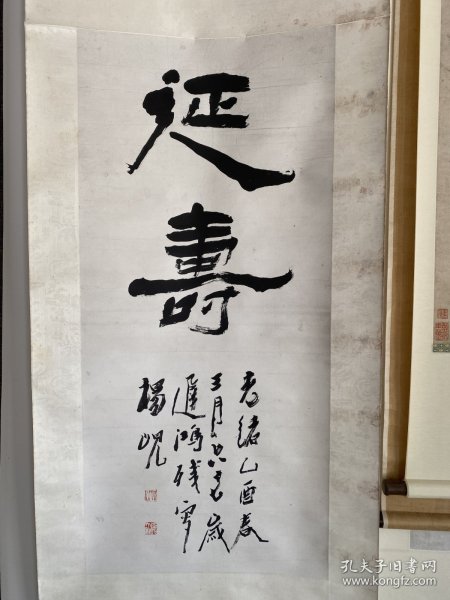 延壽
光緒乙酉春
王月六十七歲
遲鴻殘叟
楊峴
孔夫子旧书网
www.kongfz.com